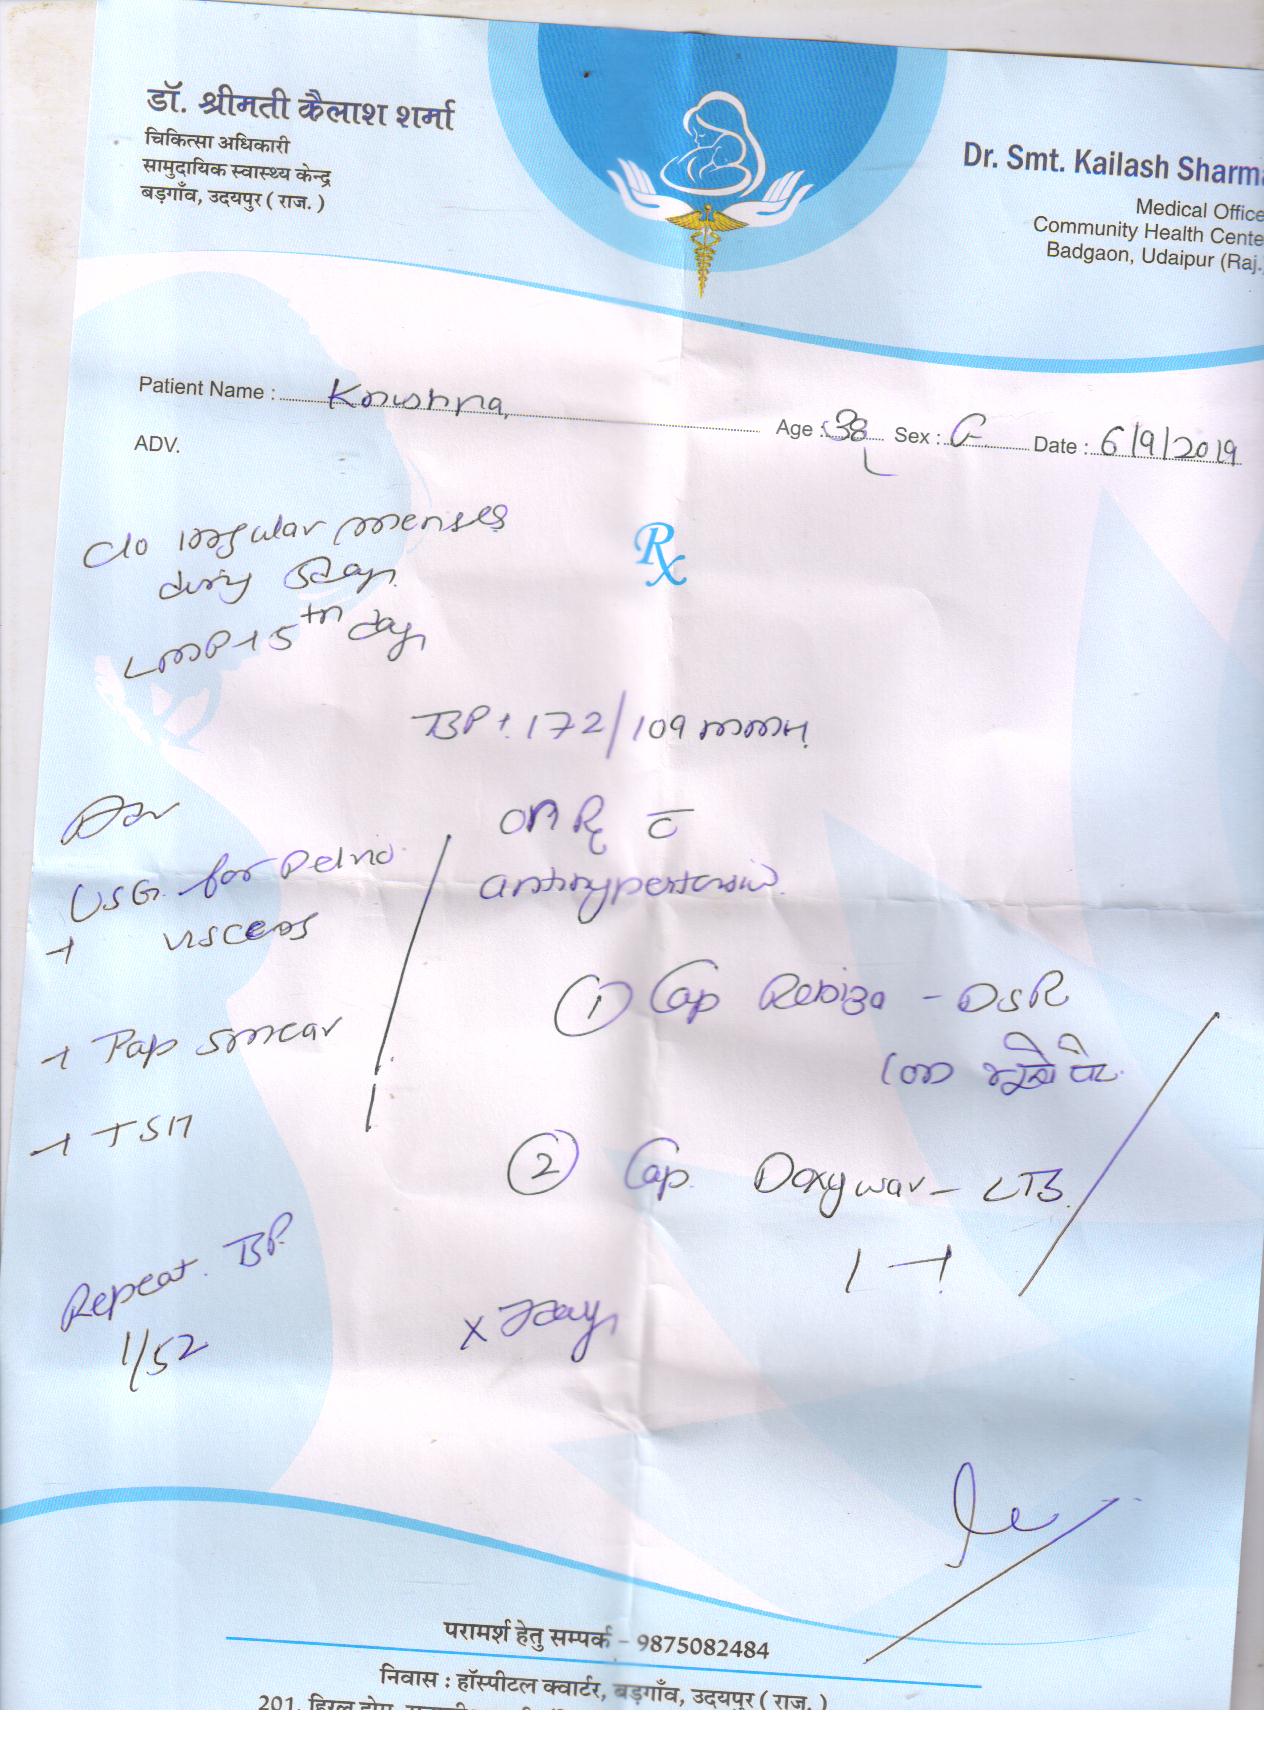 डॉ. श्रीमती कैलाश शर्मा
चिकित्सा अधिकारी
सामुदायिक स्वास्थ्य केन्द्र
बड़गाँव, उदयपुर ( राज. )
Dr. Smt. Kailash Sharma
Medical Office
Community Health Cente
Badgaon, Udaipur (Raj.)
Patient Name : Krishna Age : 38 Sex : F Date : 6/9/2019
ADV.
Rx
c/o irregular menses
during 5 days
LMP → 5th day
BP → 172/109 mmH
Adv
USG for Pelvic
+ viscera
→ Pap smear
→ TSH
On Rx c̅
antihypertensive
① Cap Rabiza - DSR
भूखे पेट
② Cap. Doxywar - LTB
1 - 1
x 7 days
Repeat BP
1/52
परामर्श हेतु सम्पर्क - 9875082484
निवास : हॉस्पीटल क्वार्टर, बड़गाँव, उदयपुर ( राज. )
201,